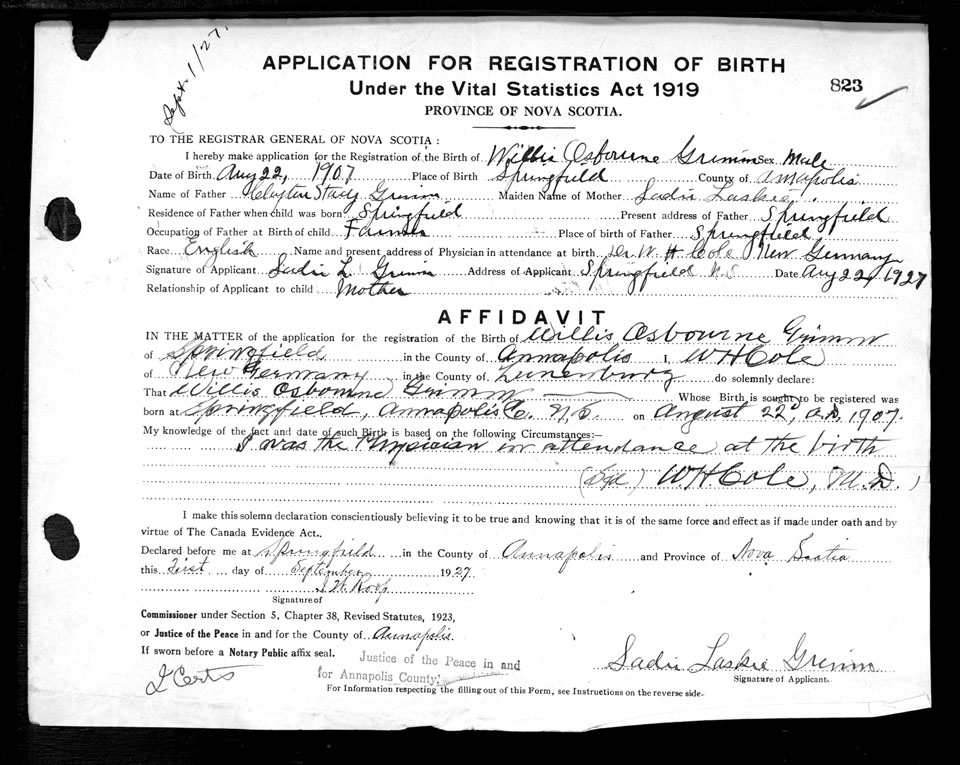 Sept. 1/27.
APPLICATION FOR REGISTRATION OF BIRTH
Under the Vital Statistics Act 1919
823
PROVINCE OF NOVA SCOTIA.
TO THE REGISTRAR GENERAL OF NOVA SCOTIA:
I hereby make application for the Registration of the Birth of Willis Osbourne Grimm Sex Male
Date of Birth Aug 22, 1907 Place of Birth Springfield County of Annapolis
Name of Father Grimm Maiden Name of Mother Sadie Laskie
Residence of Father when child was born Springfield Present address of Father Springfield
Occupation of Father at Birth of child Farmer Place of birth of Father Springfield
Race English Name and present address of Physician in attendance at birth Dr. W H Cole New Germany
Signature of Applicant Sadie L Grimm Address of Applicant Springfield N.S Date Aug 22, 1927
Relationship of Applicant to child Mother
AFFIDAVIT
IN THE MATTER of the application for the registration of the Birth of Willis Osbourne Grimm
of Springfield in the County of Annapolis I, W H Cole
of New Germany in the County of Lunenburg do solemnly declare:
That Willis Osbourne Grimm Whose Birth is sought to be registered was
born at Springfield, Annapolis Co. N.S. on August 22d, A.D. 1907.
My knowledge of the fact and date of such Birth is based on the following Circumstances:—
I was the Physician in attendance at the birth
(Sgd) W H Cole, M.D.)
I make this solemn declaration conscientiously believing it to be true and knowing that it is of the same force and effect as if made under oath and by
virtue of The Canada Evidence Act.
Declared before me at Springfield in the County of Annapolis and Province of Nova Scotia
this First day of September 1927
W. Roop
Signature of
Commissioner under Section 5, Chapter 38, Revised Statutes, 1923,
or Justice of the Peace in and for the County of Annapolis.
If sworn before a Notary Public affix seal.
Justice of the Peace in and
for Annapolis County,
Sadie Laskie Grimm
Signature of Applicant.
2 Certs
For Information respecting the filling out of this Form, see Instructions on the reverse side.